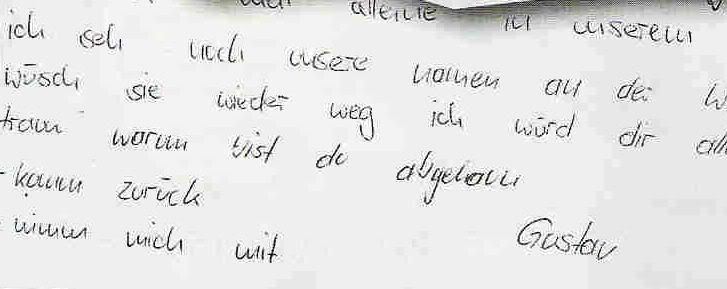 alleine in unserem
ich seh noch unsere namen an der
wüsch sie wieder weg ich würd dir
traum warum bist du abgehaun
komm zurück
nimm mich mit Gustav